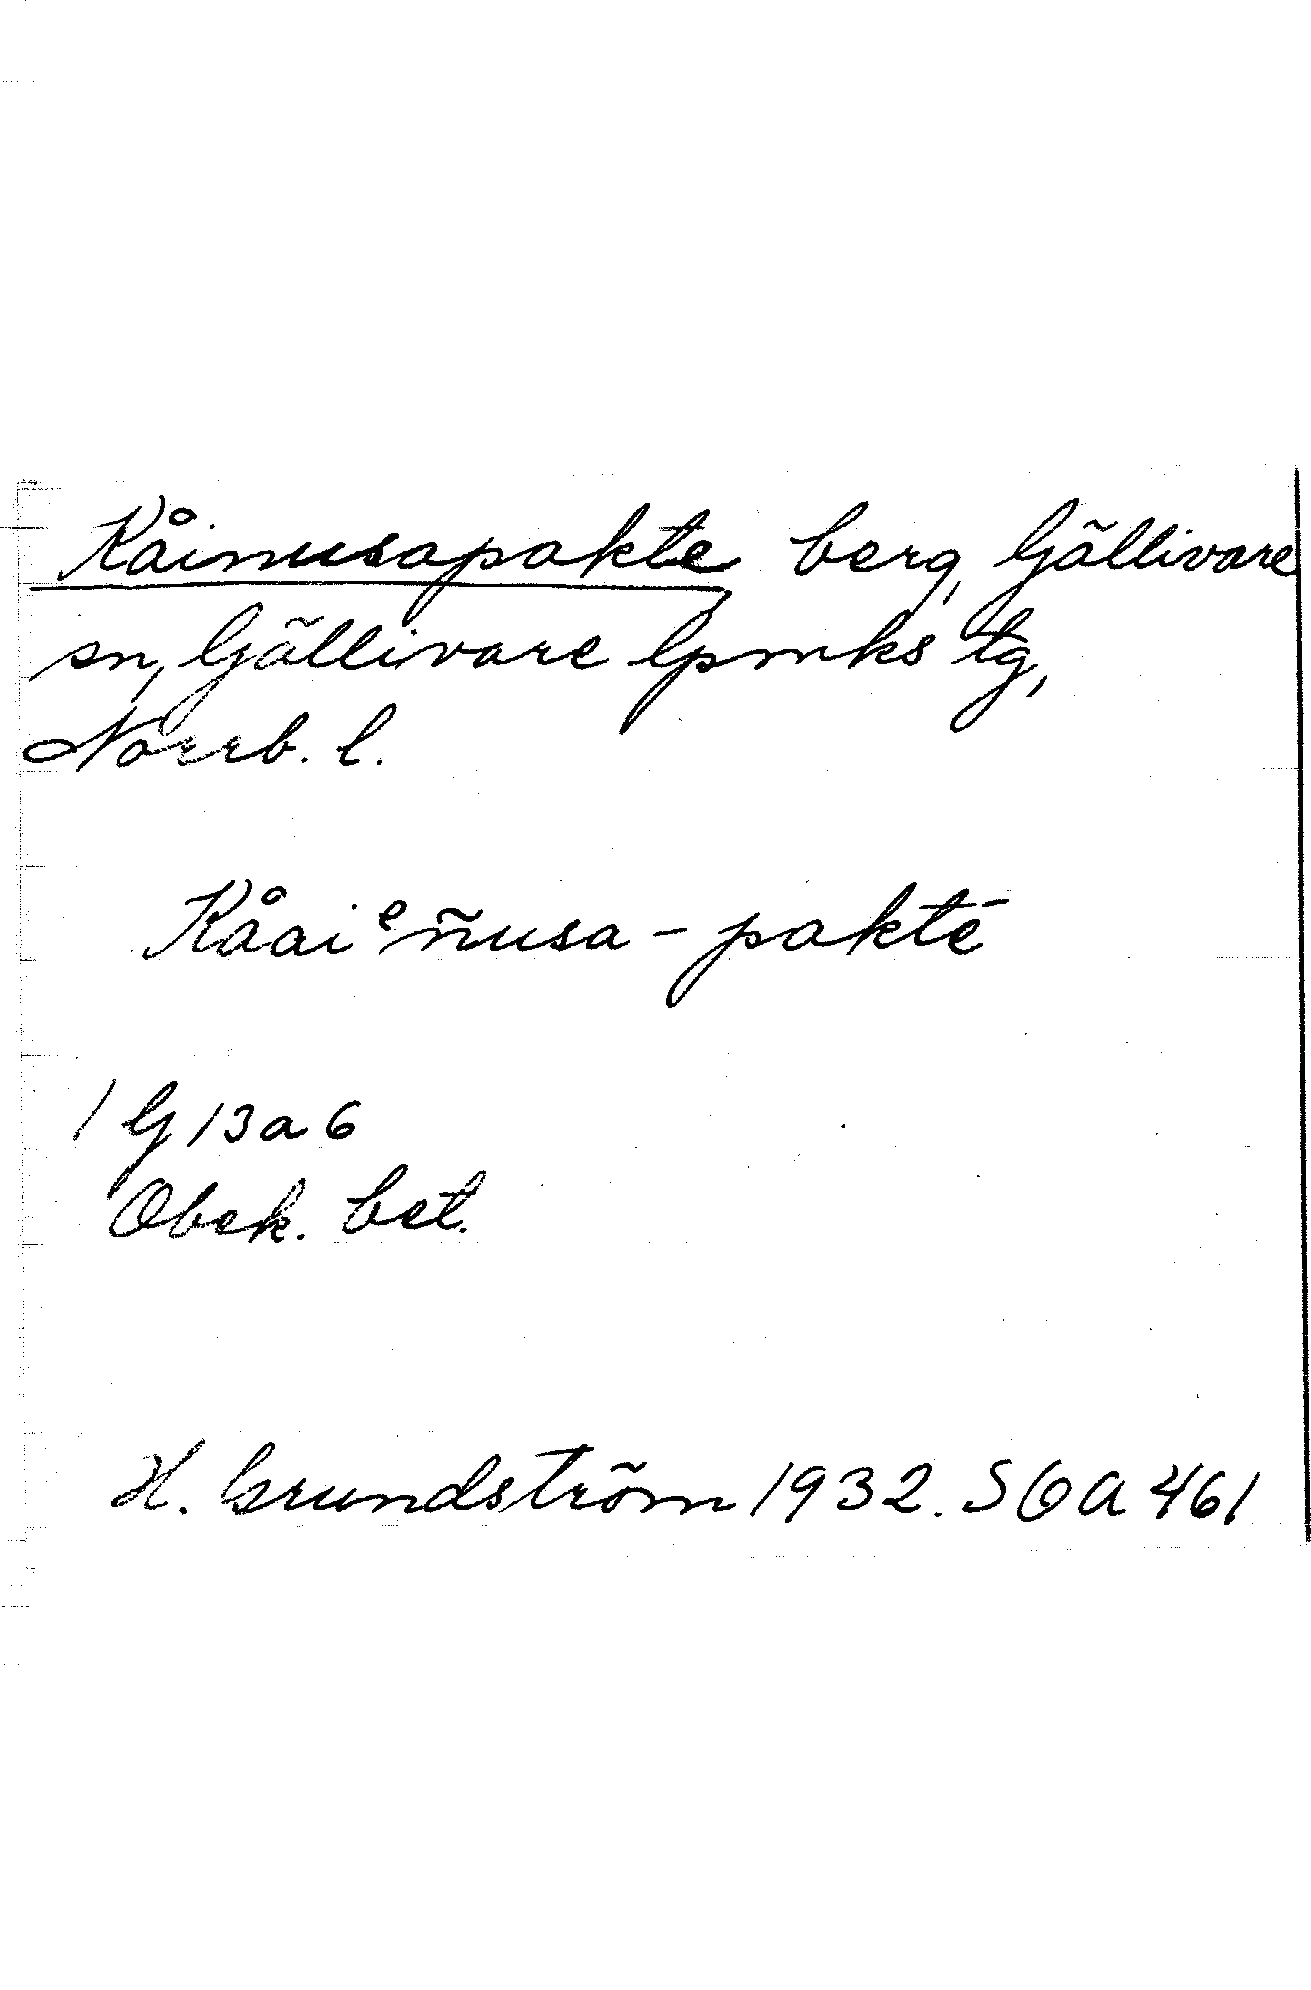 Kåinusapakte berg, Gällivare
sn, Gällivare lpmks tg,
Norrb. l.
Kåaiᵉñusa-paktē
1 G 13 a 6
Obek. bet.
H. Grundström 1932. SOA 461